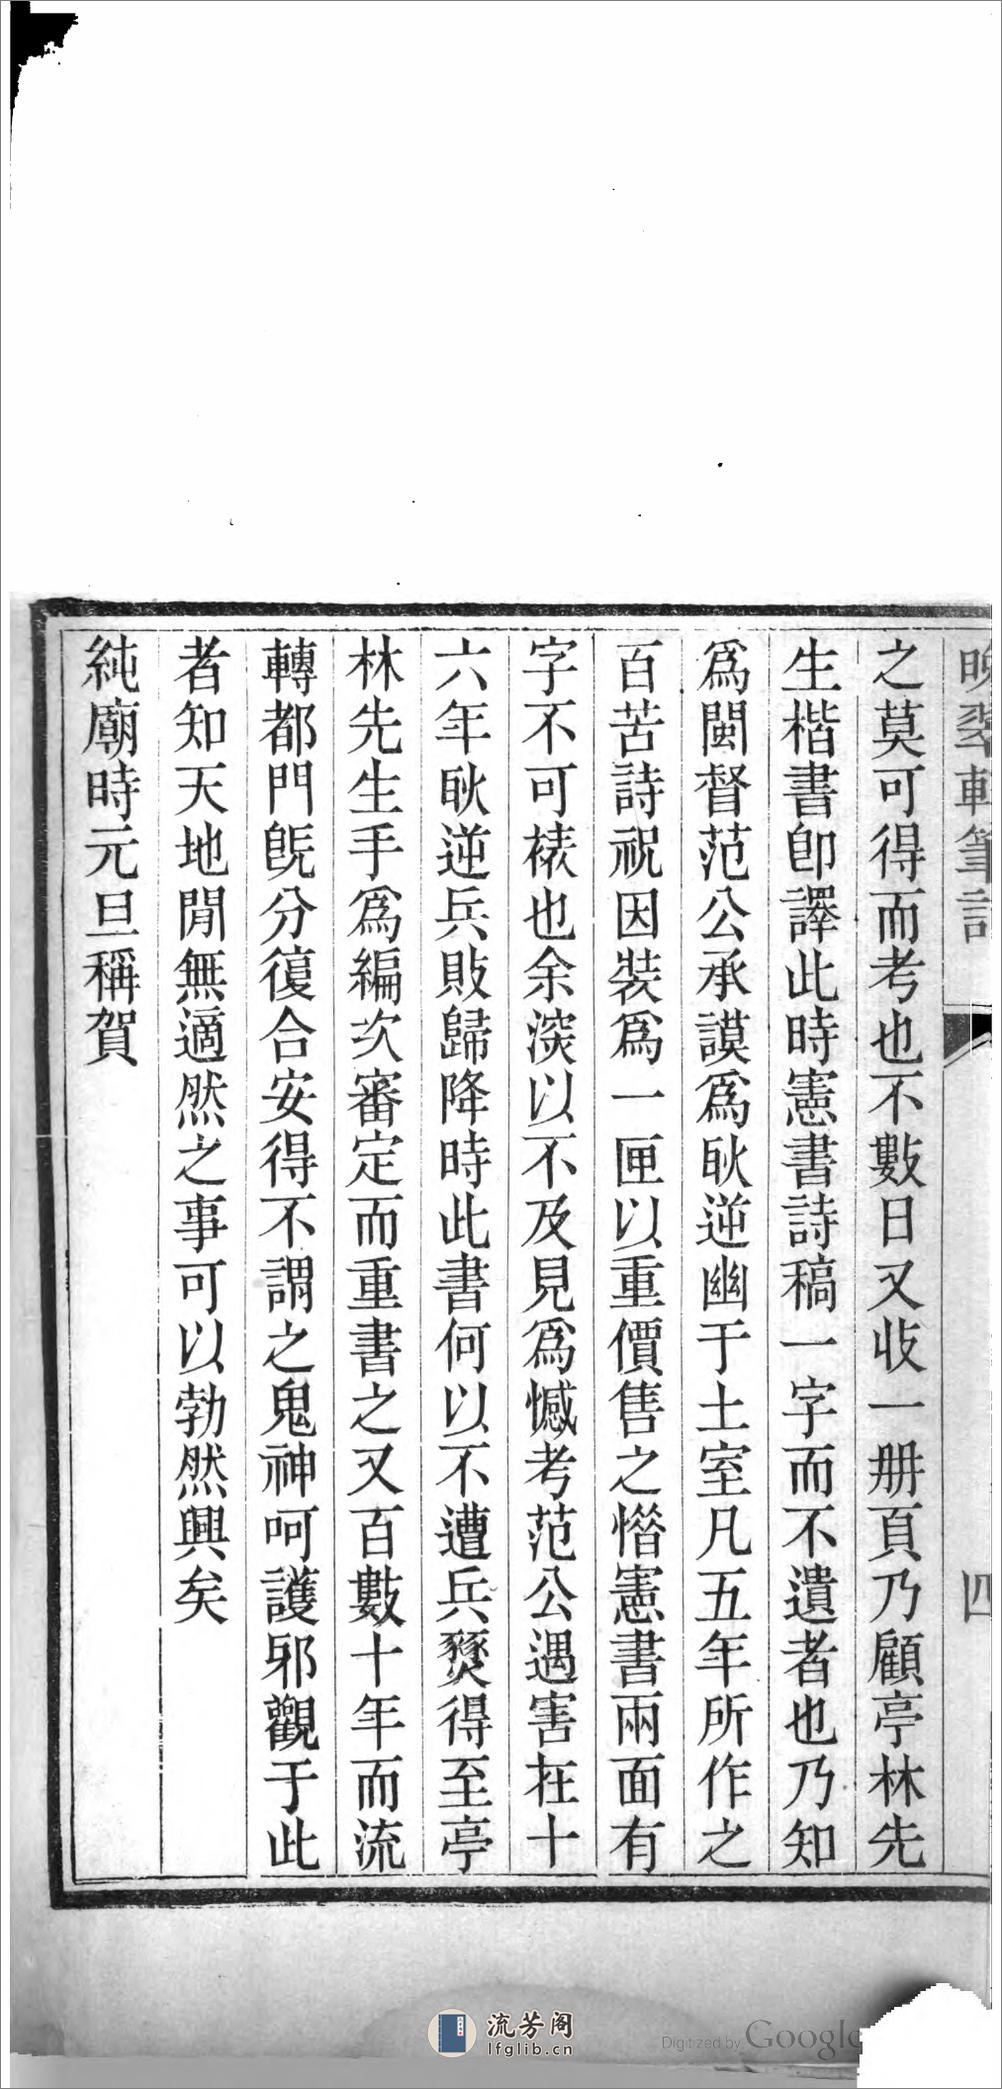 晚翠軒筆記
四
之莫可得而考也不數日又收一册頁乃顧亭林先
生楷書卽譯此時憲書詩稿一字而不遺者也乃知
爲閩督范公承謨爲耿逆幽于土室凡五年所作之
百苦詩祝因裝爲一匣以重價售之惜憲書兩面有
字不可裱也余深以不及見爲憾考范公遇害在十
六年耿逆兵敗歸降時此書何以不遭兵燹得至亭
林先生手爲編次審定而重書之又百數十年而流
轉都門旣分復合安得不謂之鬼神呵護邪觀于此
者知天地閒無適然之事可以勃然興矣
純廟時元旦稱賀
流芳阁
lfglib.cn
Digitized by Google